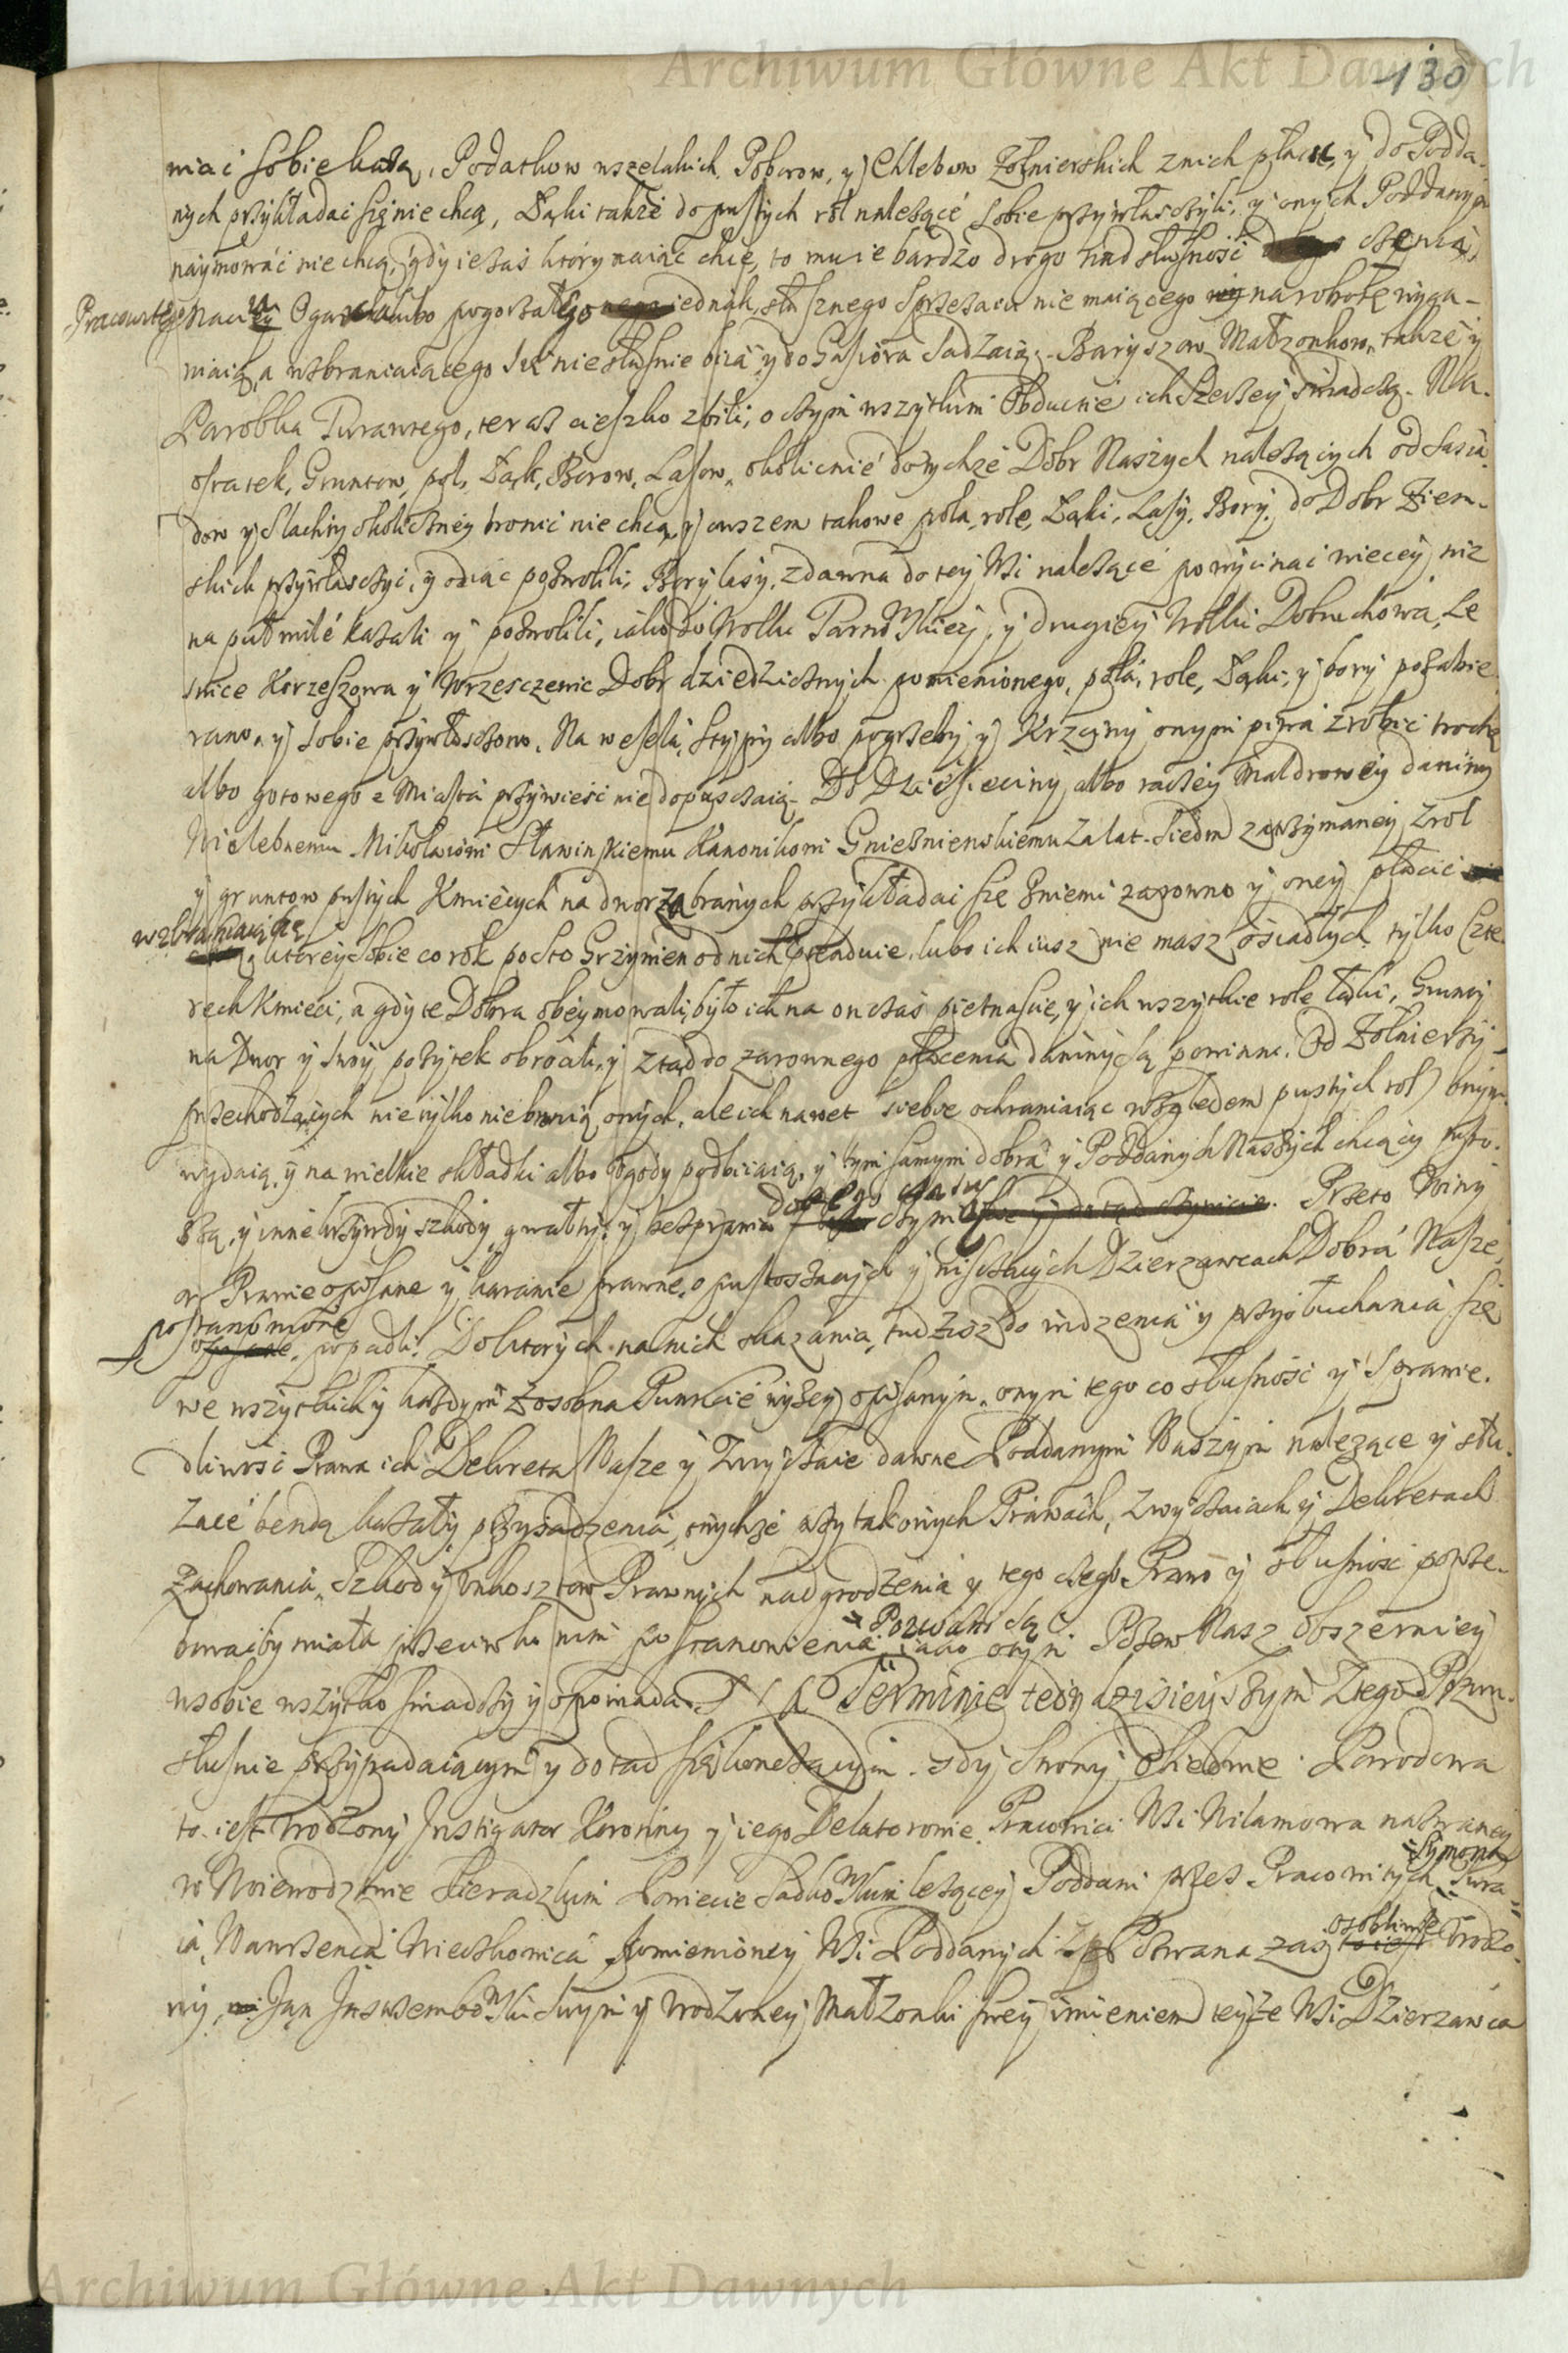 Archiwum Główne Akt Dawnych
130
miac sobie każą, Podatkow wszelakich, Poborow, y Chlebow Żołnierskich znich płacic, y do Podda-
nych przykładac się nie chcą, Łąki także do pustych ról należące sobie przywłaszczyli, y onych Poddanym
naymowáć nie chcą, gdy ie zaś który naiąc chce, to mu ie bardzo drogo nad słuszność cenią,
Pracowitego Macieja lubo pogorzałego iednak, słusznego Sprzężaiu nie maiącego na robotę wyga-
niaią, a wzbraniaiącego się niesłusznie biią y do Gąsiora sadzaią. Baryszow Małżonkow, także y
Parobka Turawego, teraz cieszko zbili, o czym wszytkim Obductie ich szerzey świadczą. Na-
ostatek, Gruntow, pol, Łąk, Borow, Lasow, okolicnie do tychże Dobr Naszych należących od Sąsia-
dow y Slachty okoliczney bronić nie chcą, y owszem takowe pola, role, Łąki, Lasy, Bory, do Dobr Ziem-
skich przywłaszczyc, y odiąc pozwolili, Bory lasy, zdawna do tey Wsi należące powycinac więcey niz
na puł milé kazali y pozwolili, iako do Wolki y drugiey Wolki Dobruchowa, Le
śnice Korzeszowa y Wrzesczewic Dobr dziedzicznych pomienionego, pola, role, Łąki, y bory pozabie
rano, y sobie przywłaszczono. Na wesela, Stypy albo pogrzeby y Krzciny onym piwa zrobić trochę
albo gotowego z Miasta przywieść nie dopusczaią. Do Dziesięciny albo raczey Małdrowey daniny
Wielebnemu Mikołaiowi Sławinskiemu Kanonikowi Gnieźnienskiemu za lat siedm zatrzymaney zrol
y gruntow pustych Kmiecych na dwor zabranych przykładac się zniemi zarowno y oney płacić
wzbraniaią się
ktorey sobie co rok po sto Grzywien od nich prętenduie, lubo ich iusz nie masz osiadłych tylko Czte-
rech Kmieci, a gdy te Dobra obeymowali, było ich na on czas piętnascie, y ich wszytkie role Łąki, Grunty
na Dwor y swoy pożytek obrócili, y ztąd do zarownego płacenia daniny są powinni. Od Żołnierzy
przechodzących nie tylko nie bronią onych, ale ich nawet siebie ochraniaiąc względem pustych rol onym
wydaią, y na wielkie składki albo Ugody podbiiaią, y tym samym dobra y Poddanych Naszych chcący pusto-
szą, y inne krzywdy szkody gwałty, y bezprawia do tego czasu czynią. Przeto Winy
w Prawie opisane y karanie prawne, o pustoszących y nisczących Dzierzawcach Dobrá Nasze
postanowione
popadli. Do ktorych na nich skazania, tudziesz do widzenia y przysłuchania się
we wszytkich y każdym zosobna Punkcie wyżey opisanym, onym tego co słusność y Sprawie-
dliwość Prawa ich Dekreta Nasze y Zwyczaie dawne Poddanym Naszym należące y słu-
żące będą kazały przysądzenia, onychże przy takowych Prawach, Zwyczaiach y Dekretach
Zachowania, Szkod y Unkosztow Prawnych nadgrodzenia y tego czego Prawo y słusność potrze-
bowaćby miała przeciwko nim postanowienia Pozwani są iako onym Pozew Nasz obszerniey
wsobie wszytko świadczy y opowiada. Na Terminie tedy dzisieyszym Ztego Pozwu
słusnie przypadaiącym y dotąd się konczącym, gdy Strony Obiedwie Powodowa
to iest Urodzony Instigator Koronny y iego Delatorowie Pracowici Wsi Wilamowa nazwaney
w Woiewodztwie Sieradzkim Powiecie Szadkowskim leżącey Poddani przez Pracowitych Symona
ia, Wawrzenca pomienioney Wsi Poddanych, Pozwana zaś osobliwie Urodzo-
ny, Jan swym y Urodzoney Małżonki swey imieniem teyże Wsi Dzierzawca
Archiwum Główne Akt Dawnych